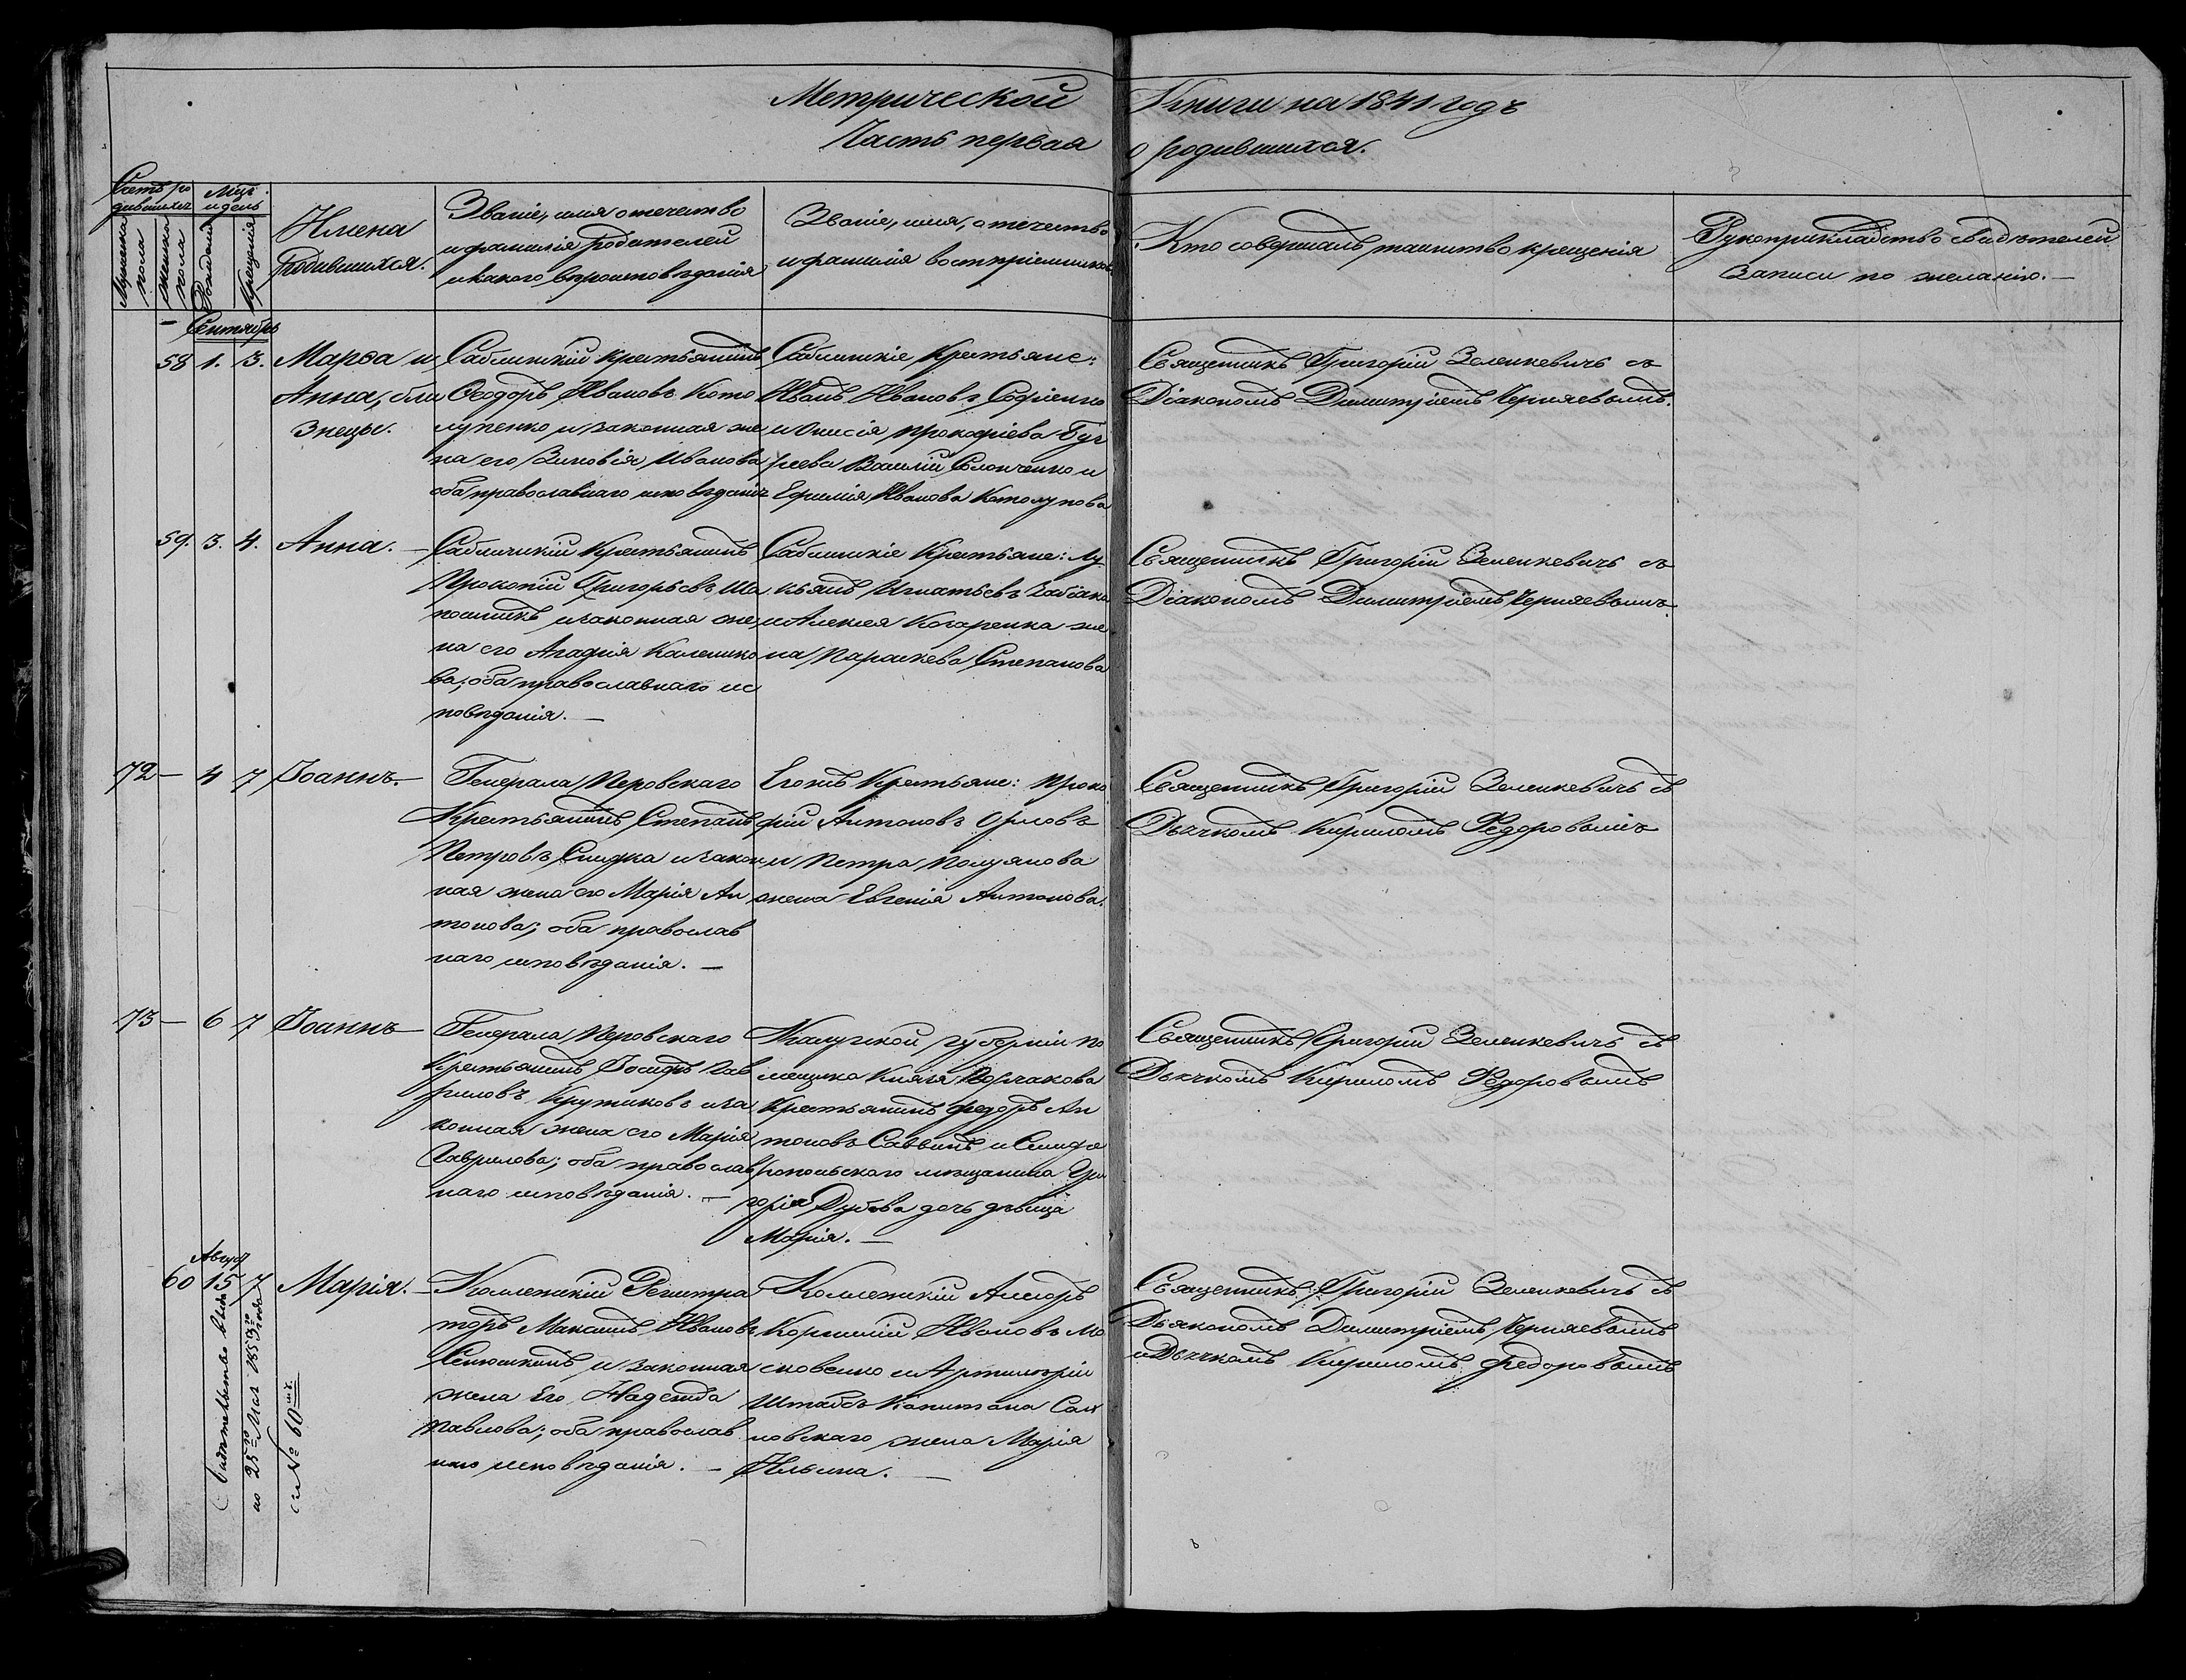 Метрической Книги на 1841 годъ
Часть первая о родившихся.
Счетъ ро
дившихся
Мужеска
пола
Женска
пола
Мѣся.
и день
Рожденія
Крещенія
Имена
Родившихся.
Званіе, имя отчество
и фамилія Родителей
и какого вѣроисповѣданія
Званіе, имя, отчество
и фамилія воспріемниковъ
Кто совершалъ таинство крещенія
Рукоприкладство свидѣтелей
Записи по желанію. —
Сентябрь
58 1. 3. Марѳа и
Анна, бли
знецы.
Саблинскій Крестьянинъ
Ѳеодоръ Ивановъ Кото
лупенко и законная же
на его Зиновія Иванова
оба православнаго исповѣданія
Саблинскіе Крестьяне:
Иванъ Ивановъ Софіенко
и Онисія Прокофіева
Василій и
Ефимія Иванова Котолупова
Священникъ Григорій Зеленкевичъ съ
Діакономъ Димитріемъ Черняевымъ.
59. 3. 4. Анна. —
Саблинскій Крестьянинъ
Прокопій Григорьевъ Ша
пошникъ и законная же
на его Агафія Калешнико
ва; оба православнаго ис
повѣданія. —
Саблинскіе Крестьяне: Лу
кьянъ Игнатьевъ
и Алексея Когаренка же
на Параскева Степанова
Священникъ Григорій Зеленкевичъ съ
Діакономъ Димитріемъ Черняевымъ.
72 — 4 7 Іоаннъ. —
Генерала Перовскаго
Крестьянинъ Степанъ
Петровъ и закон
ная жена его Марія Ан
тонова; оба православ
наго исповѣданія. —
Егожъ Крестьяне: Проко
фій Антоновъ Орловъ
и Петра Полуянова
жена Евгенія Антонова.
Священникъ Григорій Зеленкевичъ съ
Дьячкомъ Кириломъ Федоровымъ
73 — 6 7 Іоаннъ —
Генерала Перовскаго
Крестьянинъ Іосифъ Гав
риловъ Крутиковъ и за
конная жена его Марія
Гаврилова; оба православ
наго исповѣданія. —
Калужской губерніи по
мещика Князя Горчакова
Крестьянинъ Федоръ Ан
тоновъ Саввинъ и Симфе
ропольскаго мѣщанина Гри
горія Дубова дочь дѣвица
Марія. —
Священникъ Григорій Зеленкевичъ съ
Дьячкомъ Кириломъ Федоровымъ
Август
60 15 7 Марія. —
Свидѣтельство выдано
25го Мая 1859го года
за № 60мъ.
Коллежскій Регистра
торъ Максимъ Ивановъ
Сенюшкинъ и законная
жена Его Надежда
Павлова; оба православ
наго исповѣданія. —
Коллежскій Асесоръ
Корнилій Ивановъ Мо
сковенко и Артилеріи
Штабсъ Капитана
новскаго жена Марія
Ильина. —
Священникъ Григорій Зеленкевичъ съ
Дьякономъ Димитріемъ Черняевымъ
и Дьячкомъ Кириломъ Федоровымъ